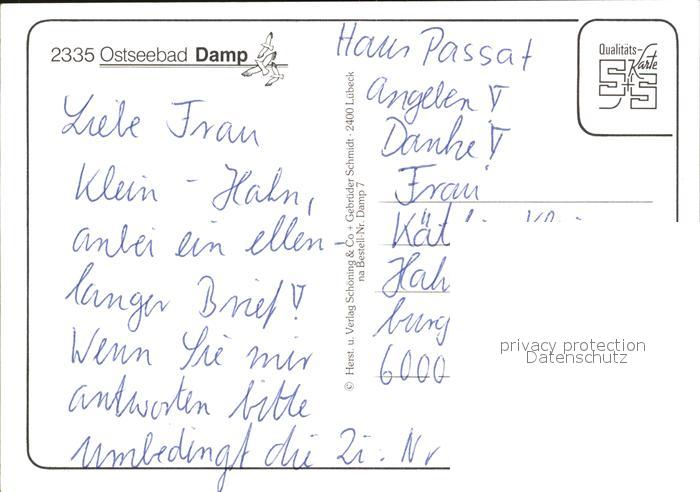 2335 Ostseebad Damp
Liebe Frau
Klein - Hahn,
anbei ein ellen-
langer Brief!
Wenn Sie mir
antworten bitte
umbedingt die Zi. Nr
Haus Passat
angeben!
Danke!
Frau
Hah
burg
6000
© Herst. u. Verlag Schöning & Co + Gebrüder Schmidt · 2400 Lübeck
na Bestell-Nr. Damp 7
Qualitäts-
Karte
S+S
privacy protection
Datenschutz